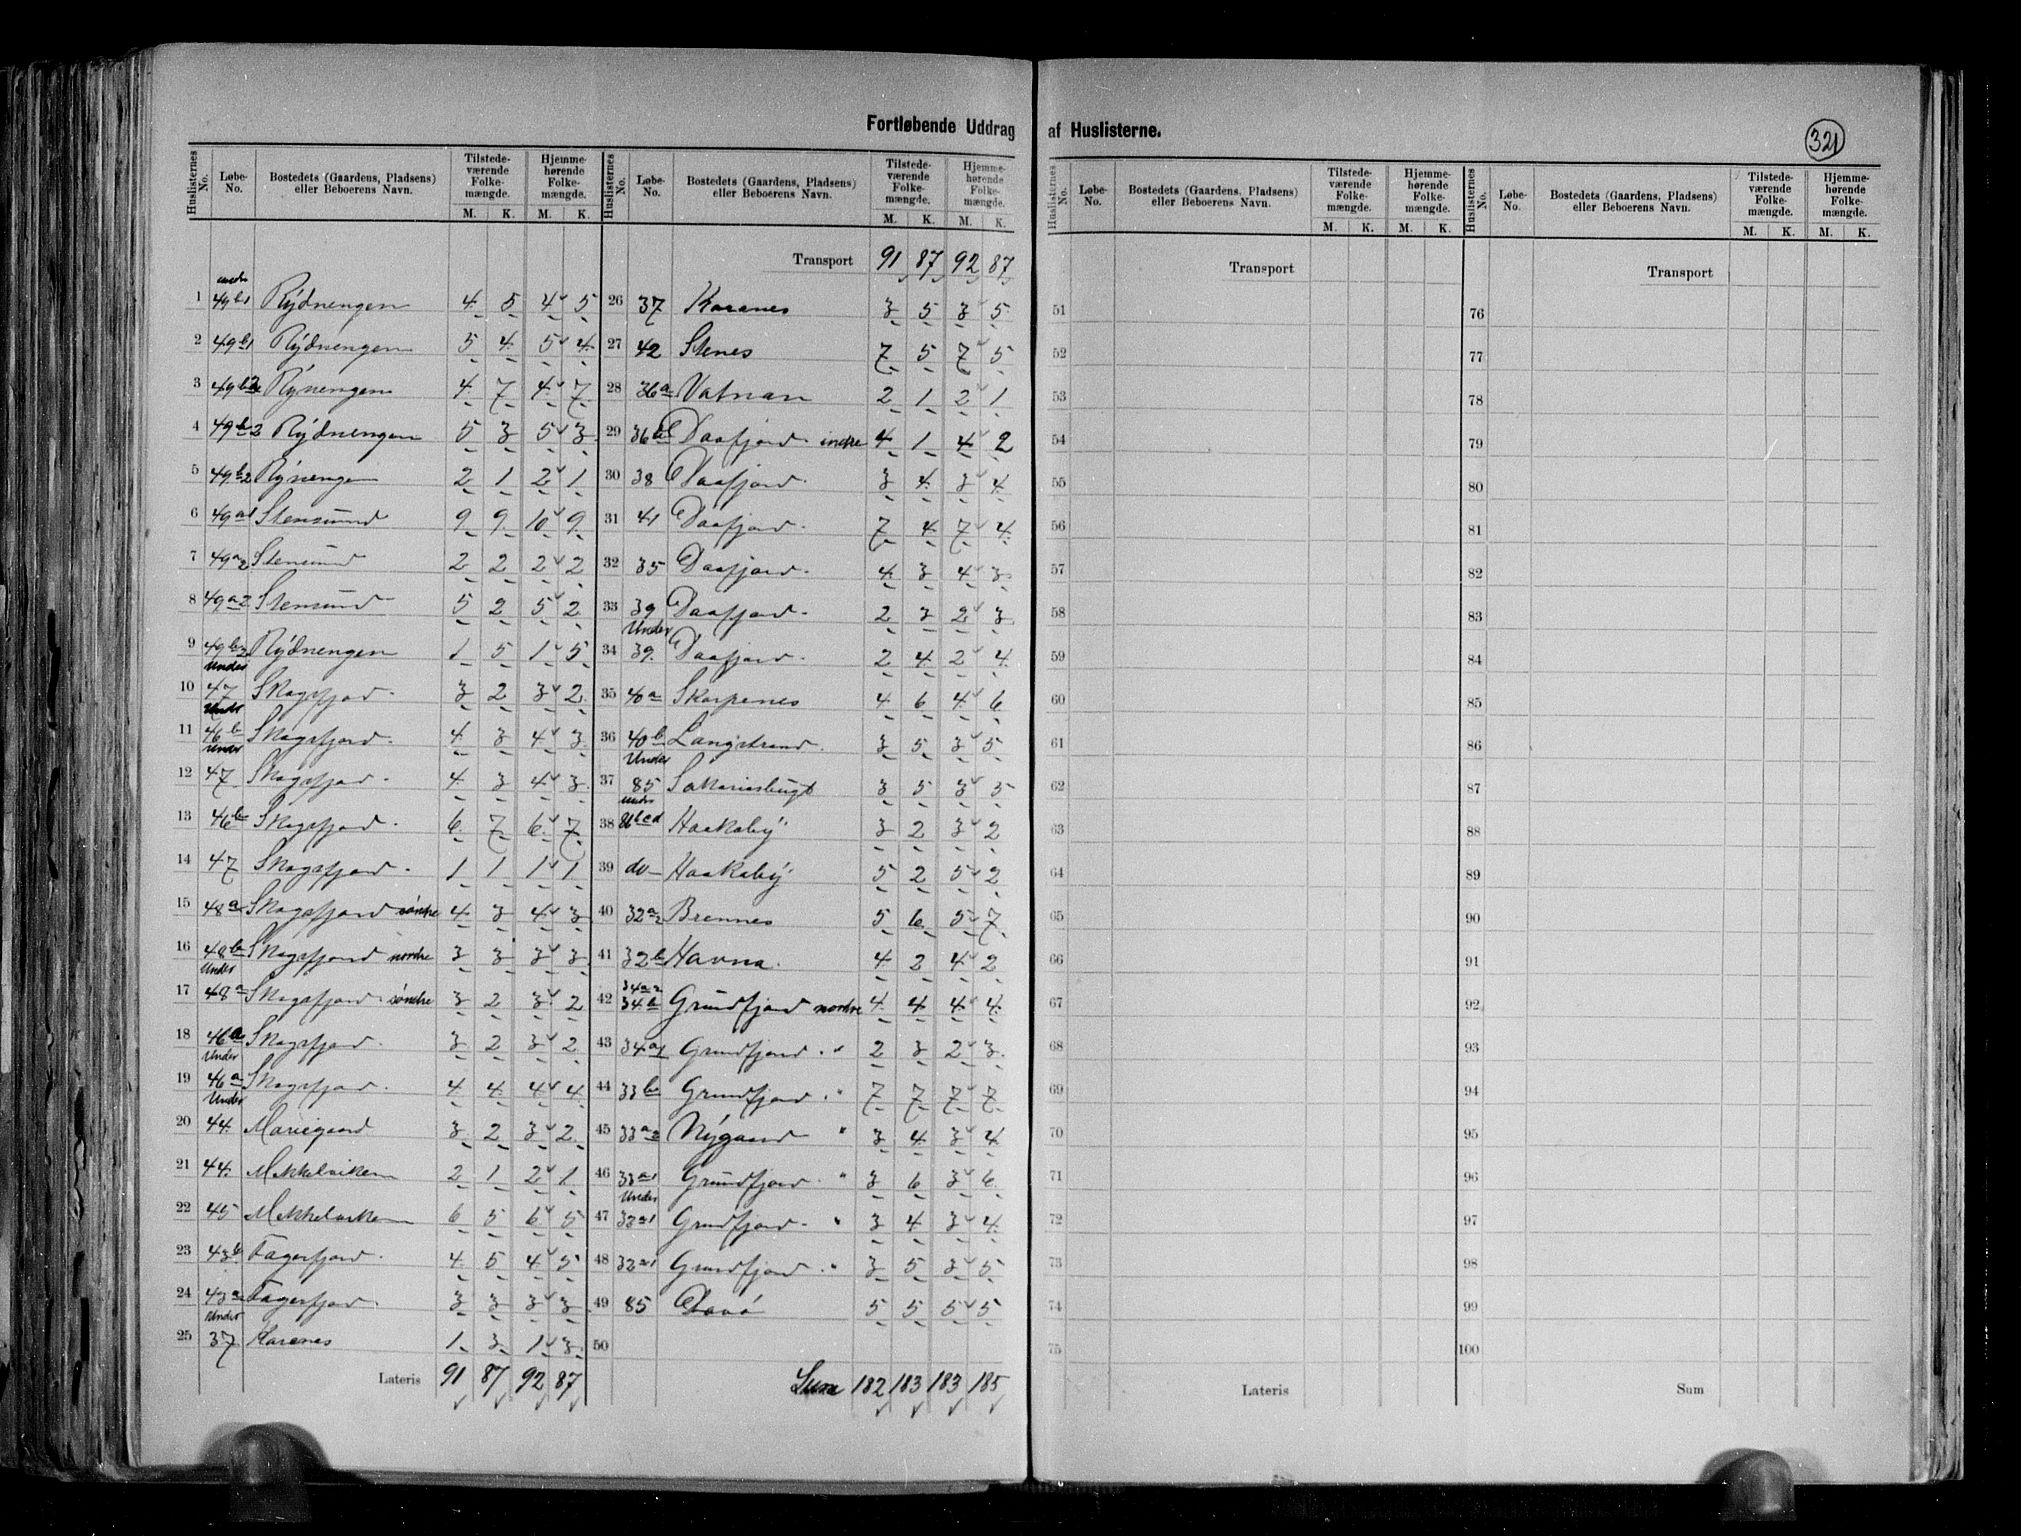 Fortløbende Uddrag af Huslisterne.
321
Huslisternes No. Løbe-No. Bostedets (Gaardens, Pladsens) eller Beboerens Navn. Tilstedeværende Folkemængde. M. K. Hjemmehørende Folkemængde. M. K.
under
1 49b1 Rýdnengen 4 5 4 5
2 49b1 Rýdnengen 5 4 5 4
3 49b2 Rýnengen 4 7 4 7
4 49b2 Rýdnengen 5 3 5 3
5 49b2 Rýnengen 2 1 2 1
6 49a1 Stensund 9 9 10 9
7 49a2 Stensund 2 2 2 2
8 49a2 Stensund 5 2 5 2
9 49b2 Rýdnengen 1 5 1 5
Under
10 47 Skogsfjord 3 2 3 2
Under
11 46b Skogsfjord 4 3 4 3
Under
12 47 Skogsfjord 4 3 4 3
13 46b Skogsfjord 6 7 6 7
14 47 Skogsfjord 1 1 1 1
15 48a Skogsfjord søndre 4 3 4 3
16 48b Skogsfjord nordre 3 3 3 3
Under
17 48a Skogsfjord søndre 3 2 3 2
18 46a Skogsfjord 3 2 3 2
Under
19 46a Skogsfjord 4 4 4 4
Under
20 44 Mariegaard 3 2 3 2
21 44 Mikkelviken 2 1 2 1
22 45 Mikkelviken 6 5 6 5
23 43b Fagerfjord 4 5 4 5
24 43a Fagerfjord 3 3 3 3
Under
25 37 Karenes 1 3 1 3
Lateris 91 87 92 87
Huslisternes No. Løbe-No. Bostedets (Gaardens, Pladsens) eller Beboerens Navn. Tilstedeværende Folkemængde. M. K. Hjemmehørende Folkemængde. M. K.
Transport 91 87 92 87
26 37 Karanes 3 5 3 5
27 42 Stenes 7 5 7 5
28 36a Vatnan 2 1 2 1
29 36b Daafjord indre 4 1 4 2
30 38 Daafjord 3 4 3 4
31 41 Daafjord 7 4 7 4
32 35 Daafjord 4 3 4 3
33 39 Daafjord 2 3 2 3
Under
34 39 Daafjord 2 4 2 4
35 40a Skarpenes 4 6 4 6
36 40b Langstrand 3 5 3 5
Under
37 85 Sakariasbugt 3 5 3 5
under
38 86cd Haakabý 3 2 3 2
39 do Haakabý 5 2 5 2
40 32a2 Brennes 5 6 5 7
41 32b Havna 4 2 4 2
34a2
42 34b Grundfjord nordre 4 4 4 4
43 34a1 Grundfjord " 2 3 2 3
44 33b Grundfjord " 7 7 7 7
45 33a2 Nýgaard " 3 4 3 4
46 33a1 Grundfjord " 3 6 3 6
Under
47 32a1 Grundfjord " 3 4 3 4
48 32a1 Grundfjord " 3 5 3 5
49 85 5 5 5 5
50
Sum 182 183 183 185
Huslisternes No. Løbe-No. Bostedets (Gaardens, Pladsens) eller Beboerens Navn. Tilstedeværende Folkemængde. M. K. Hjemmehørende Folkemængde. M. K.
Transport
51
52
53
54
55
56
57
58
59
60
61
62
63
64
65
66
67
68
69
70
71
72
73
74
75
Lateris
Huslisternes No. Løbe-No. Bostedets (Gaardens, Pladsens) eller Beboerens Navn. Tilstedeværende Folkemængde. M. K. Hjemmehørende Folkemængde. M. K.
Transport
76
77
78
79
80
81
82
83
84
85
86
87
88
89
90
91
92
93
94
95
96
97
98
99
100
Sum